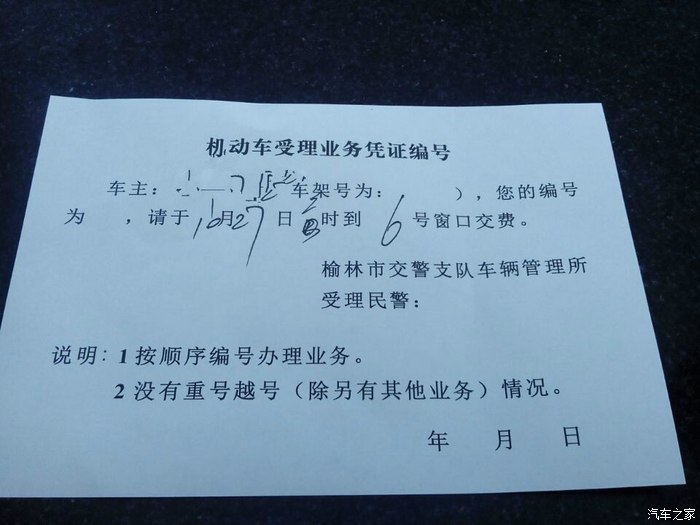 机动车受理业务凭证编号
车主： 车架号为： ），您的编号
为 ，请于10月27日 时到 6 号窗口交费。
榆林市交警支队车辆管理所
受理民警：
说明：1 按顺序编号办理业务。
2 没有重号越号（除另有其他业务）情况。
年 月 日
汽车之家